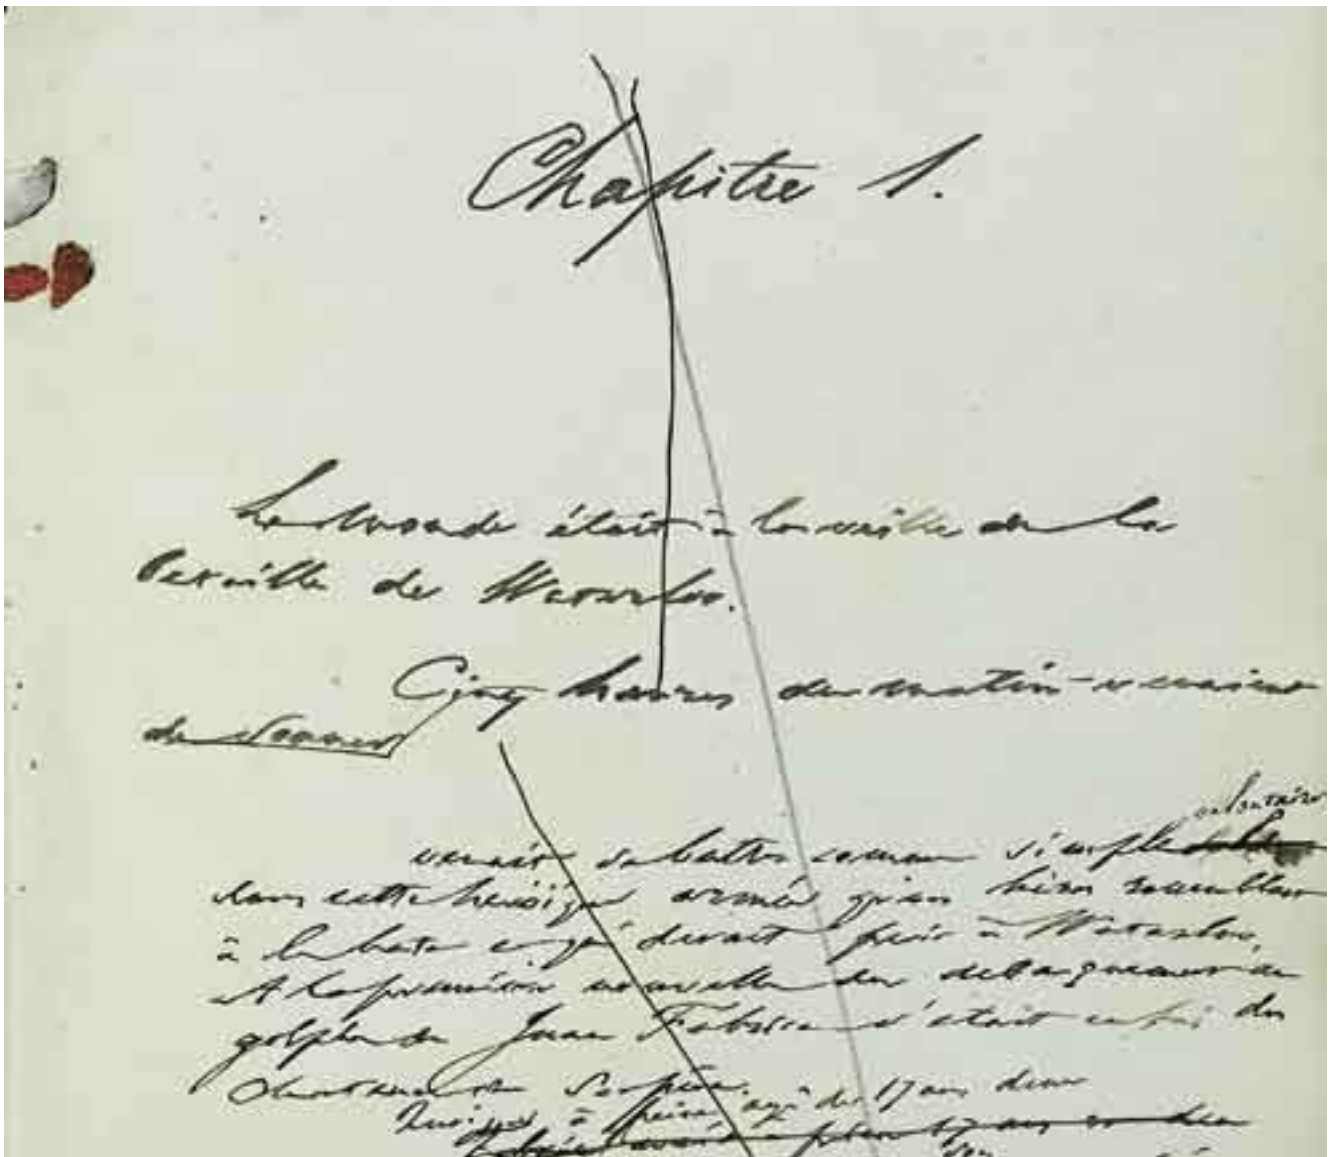 Chapitre 1.
Le monde était à la veille de la
bataille de Waterloo.
Cinq heures du matin venaient
de sonner
volontaire
venait se battre comme simple
dans cette héroïque armée qu'un héros rassemblait
à la hate et qui devait périr à Waterloo.
A la première nouvelle du debarquement au
golphe de Juan Fabrice s'était enfui du
son père.
Quoique à peine agé de 17 ans deux
à peine 17 ans